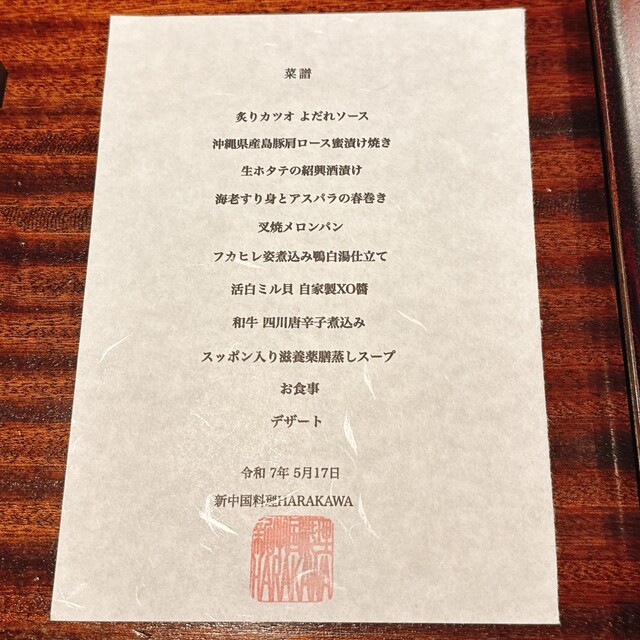 菜譜
炙りカツオ よだれソース
沖縄県産島豚肩ロース蜜漬け焼き
生ホタテの紹興酒漬け
海老すり身とアスパラの春巻き
叉焼メロンパン
フカヒレ姿煮込み鴨白湯仕立て
活白ミル貝 自家製XO醬
和牛 四川唐辛子煮込み
スッポン入り滋養薬膳蒸しスープ
お食事
デザート
令和 7年 5月17日
新中国料理HARAKAWA
新中国料理
HARAKAWA